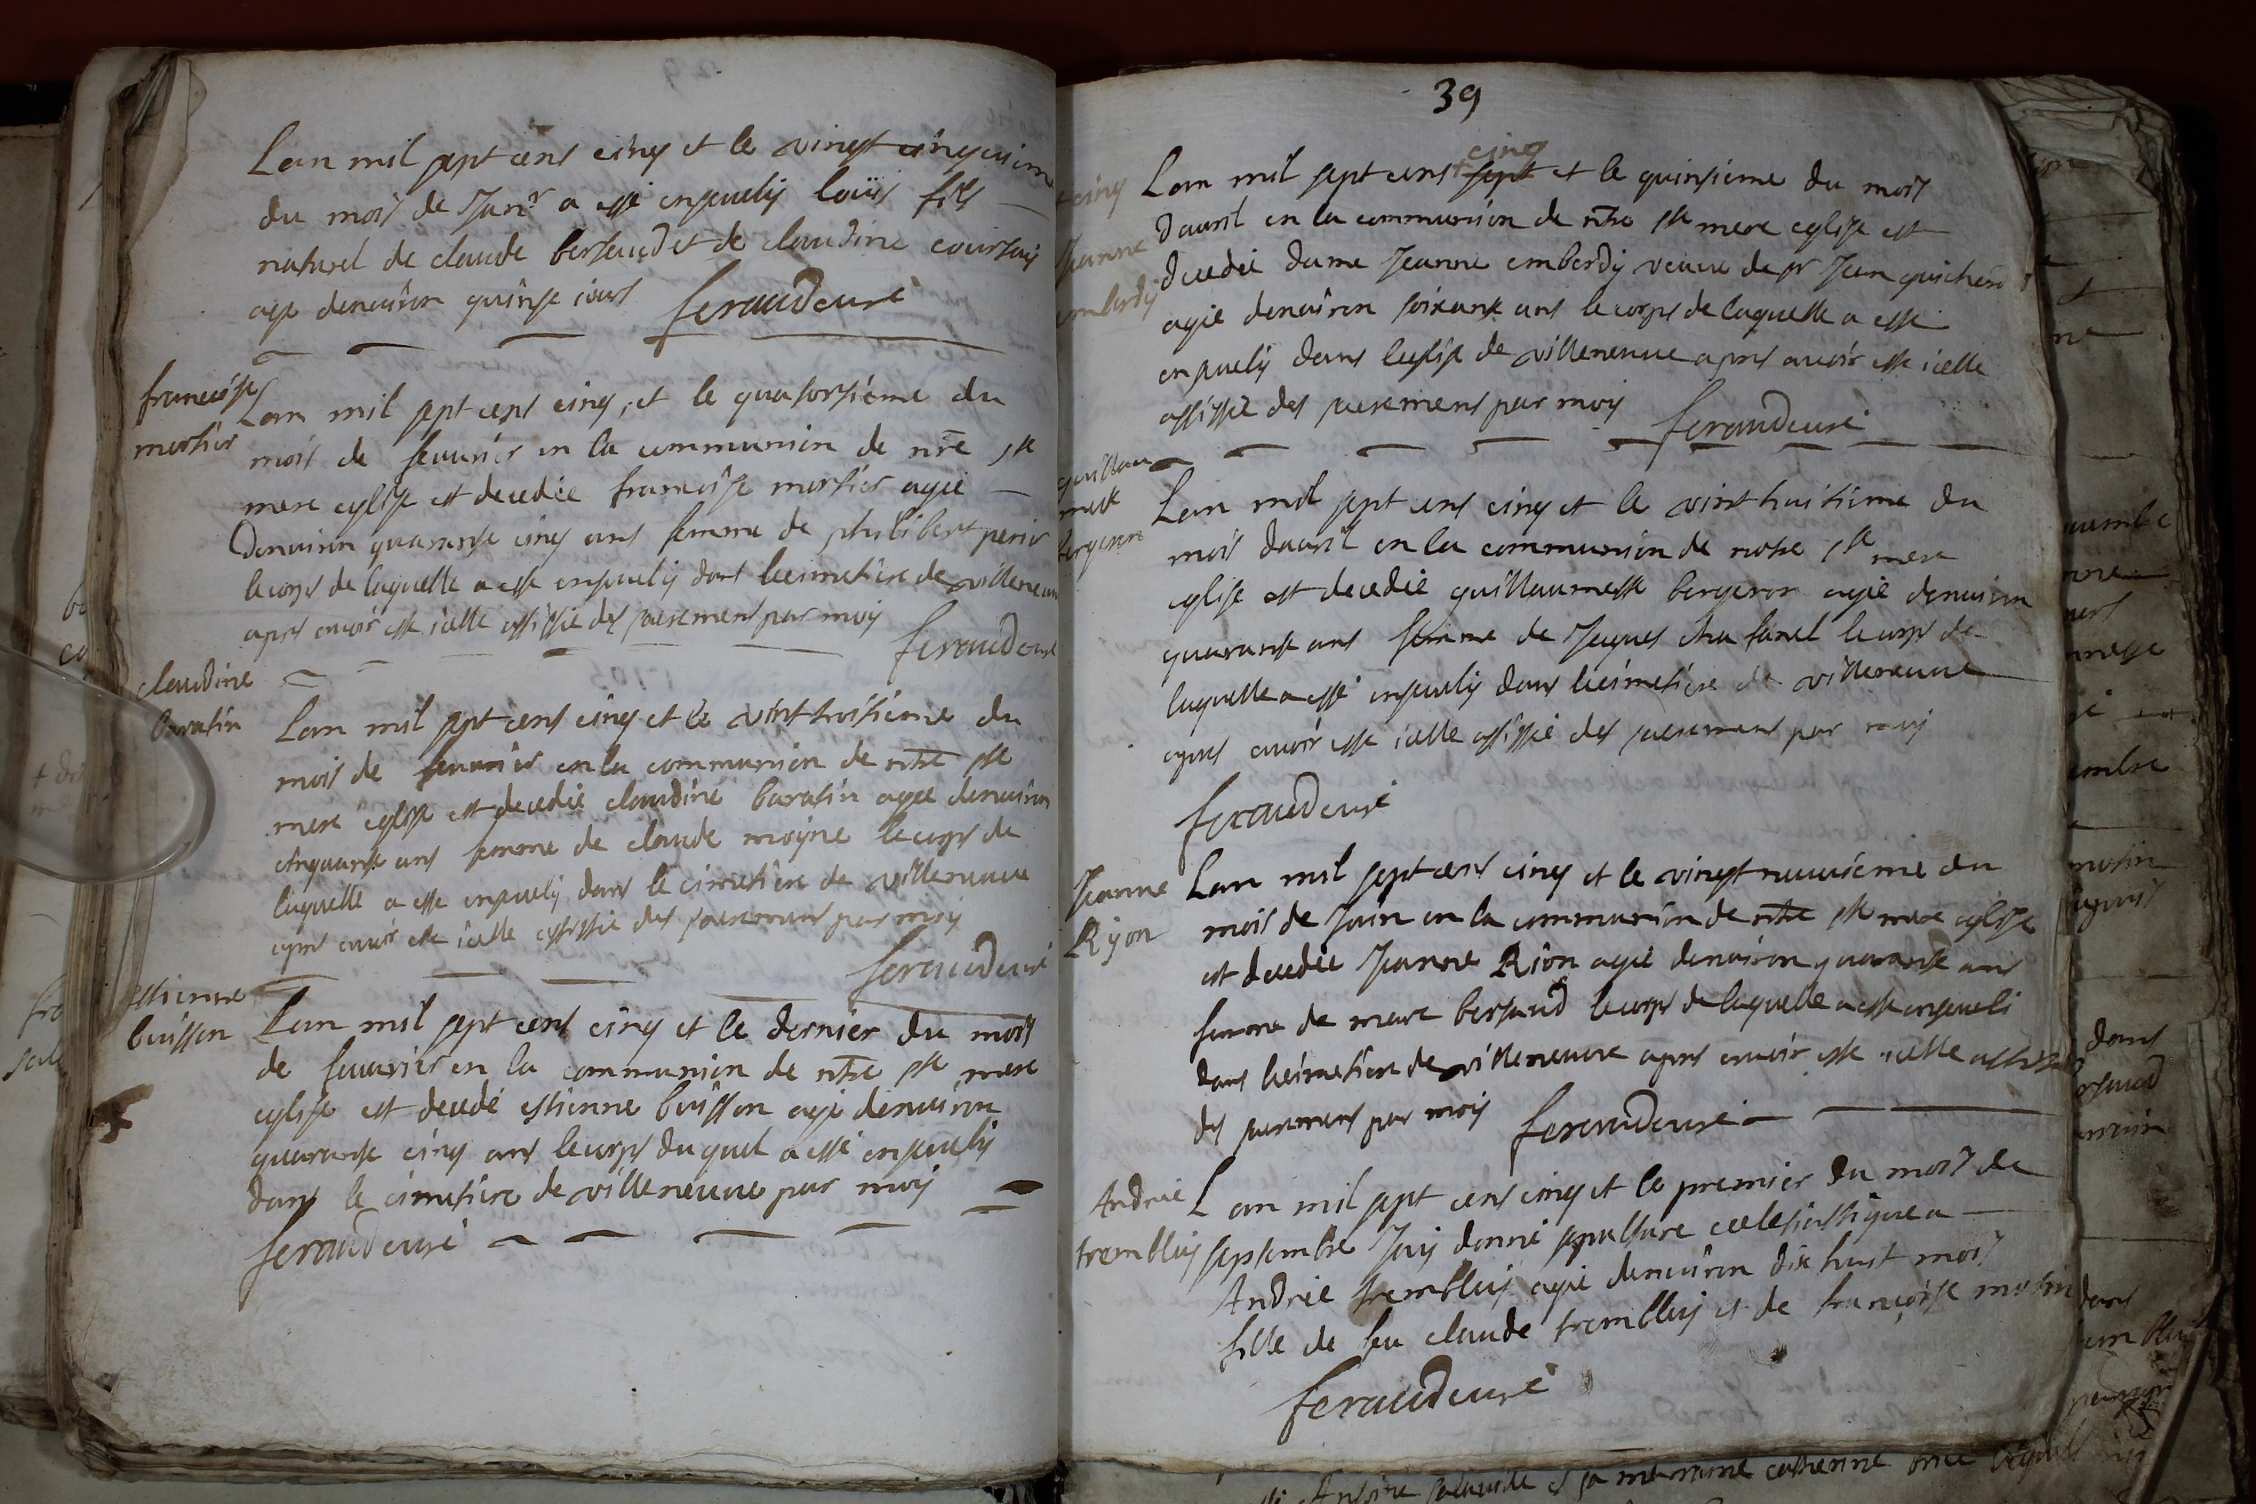 Lan mil sept cens cinq et le vingt cinquieme
du mois de Janr a esté enseuely loüis fils
naturel de claude bersaud et de claudine
agé denuiron quinse iours feraud curé
francoise
mortier
Lan mil sept cens cinq, et le quatorsieme du
mois de feuurier en la communion de nre ste
mere eglise est decedée francoise mortier agée
denuiron quarante cinq ans femme de philibert
le corps de laquelle a esté enseuely dans le cimetiere de villeneuue
apres auoir esté icelle assistée des sacremens par moy
feraud curé
claudine
baratin
Lan mil sept cens cinq et le vint troisieme du
mois de feuurier en la communion de ntre ste
mere eglise est decedée claudine baratin agée denuiron
cinquante ans femme de claude moyne le corps de
laquelle a esté enseuely dans le cimetiere de villeneuue
apres auoir esté icelle assistée des sacremens par moy
feraud curé
estienne
buisson
Lan mil sept cens cinq et le dernier du mois
de feuurier en la communion de ntre ste mere
eglise est decedé estienne buisson agé denuiron
quarante cinq ans le corps duquel a esté enseuely
dans le cimetiere de villeneuue par moy
feraud curé
39
cinq
Lan mil sept cens sept et le quinsieme du mois
dauril en la communion de ntre ste mere eglise est
Jeanne
emberdy
decedée dame Jeanne emberdy veuue de sr Jean
agée denuiron soixante ans le corps de laquelle a esté
enseuely dans leglise de villeneuue apres auoir esté icelle
assistée des sacremens par moy feraud curé
guillau
meste
bergeron
Lan mil sept cens cinq et le vint huitieme du
mois dauril en la communion de notre ste mere
eglise est decedée guillaumeste bergeron agée denuiron
quarante ans femme de Jaques le corps de
laquelle a esté enseuely dans le cimetiere de villeneuue
apres auoir esté icelle assistée des sacremens par moy
feraud curé
Jeanne
Ryon
Lan mil sept cens cinq et le vingt neuuieme du
mois de Juin en la communion de ntre ste mere eglise
est decedée Jeanne Rion agée denuiron quarante ans
femme de marc bersaud le corps de laquelle a esté enseueli
dans le cimetiere de villeneuue apres auoir esté icelle assistée
des sacremens par moy feraud curé
Andrée
trembluy
Lan mil sept cens cinq et le premier du mois de
septembre Jay donné sepulture eclesiastique a
Andrée trembluy agée denuiron dix huit mois
fille de feu claude trembluy et de françoise
feraud curé